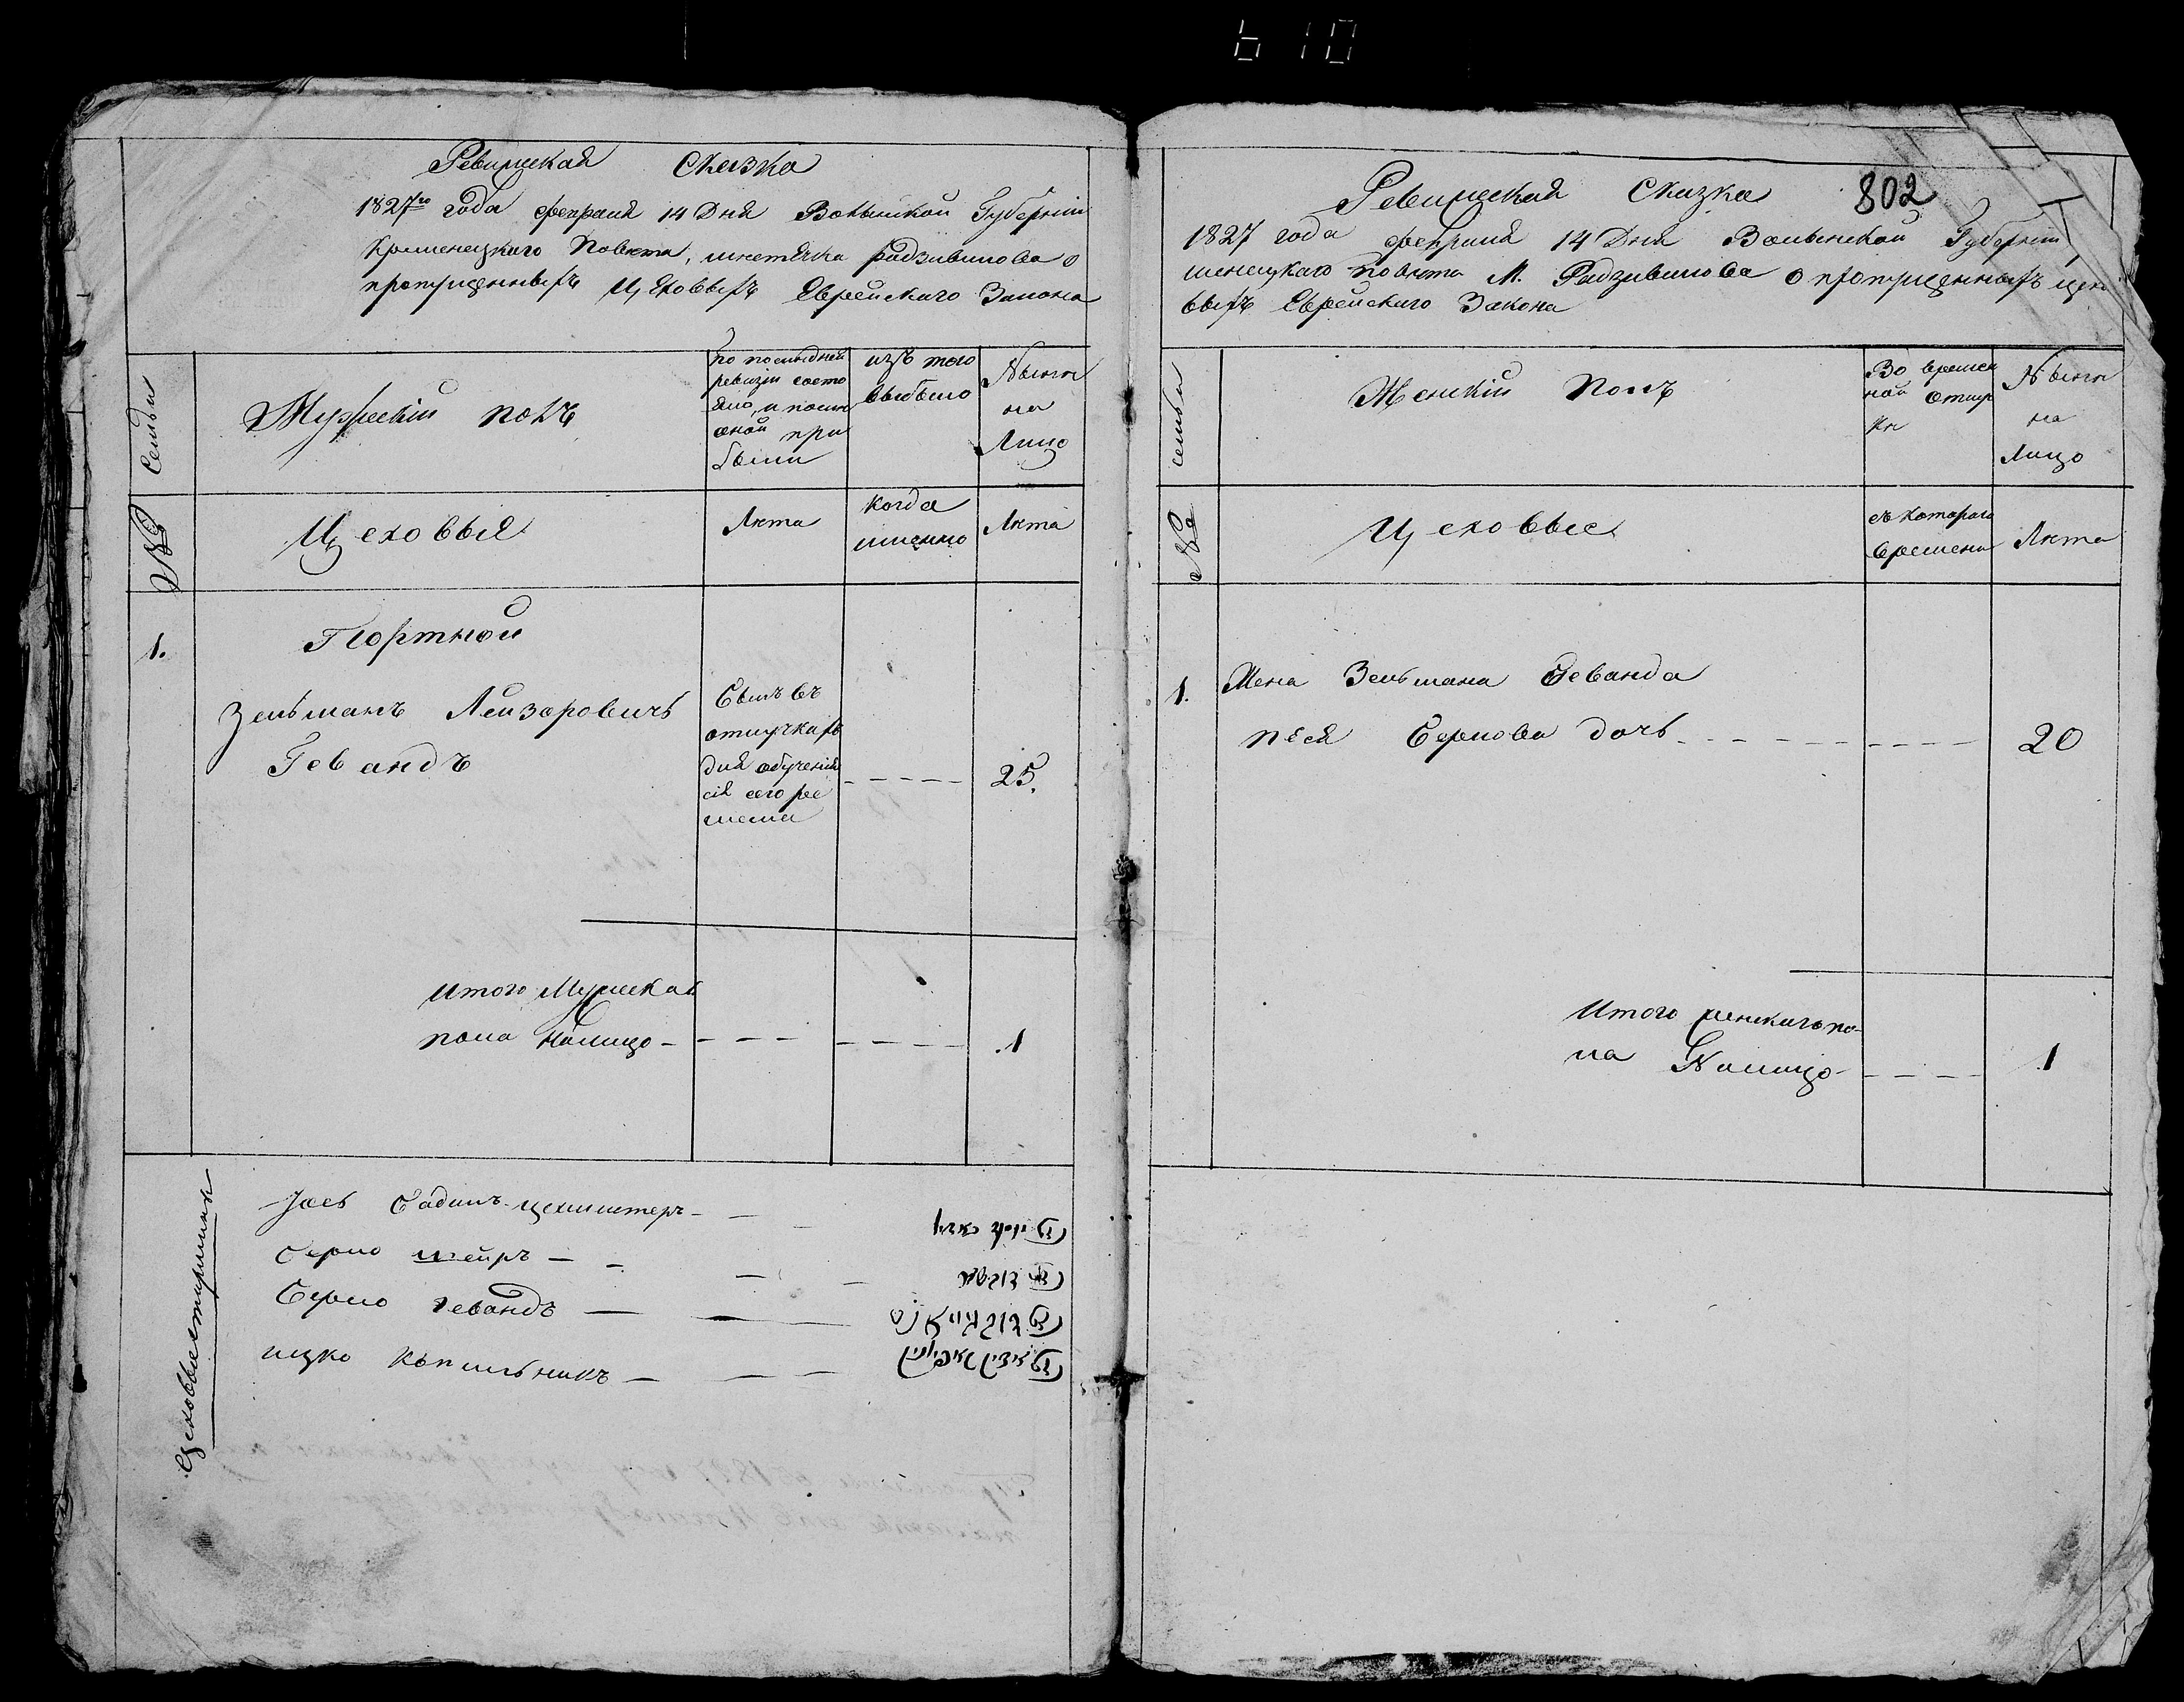 610
Ревижская Сказка
1827го года февраля 14 Дня Волынской Губерніи
Кременецкаго Повѣта, мѣстѣчка радзивилова о
пропущенныхъ Цѣховыхъ Еврейскаго Закона
№ Семьи
Мужескій полъ
по последней
ревизіи состо
яло, и после
оной при
были
изъ того
выбыло
Нынѣ
на
Лицо
Цеховыя
Лѣта
когда
именно
Лѣта
1.
Портной
Зельманъ Лейзаровичъ
Гевандъ
былъ въ
отлучкахъ
для обученія
сія сего ре
месла
25.
итого Мужеская
пола Налицо
1
Цеховые старшины
Іось Бадинъ цехмистеръ
Берко
Берко гевандъ
ицко Копильникъ
802
Ревижская Сказка
1827 года февраля 14 Дня Волынской Губерніи
менецкаго повѣта М. Радзивилова о пропущенныхъ цехо
выхъ Еврейскаго Закона
№ семьи
Женскій Полъ
Во времен
ной отлуч
кѣ
Нынѣ
на
Лицо
Цеховые
съ котораго
времени
Лѣта
1.
Жена Зельмана Геванда
песя Беркова дочь
20
Итого женскаго по-
ла Налицо
1